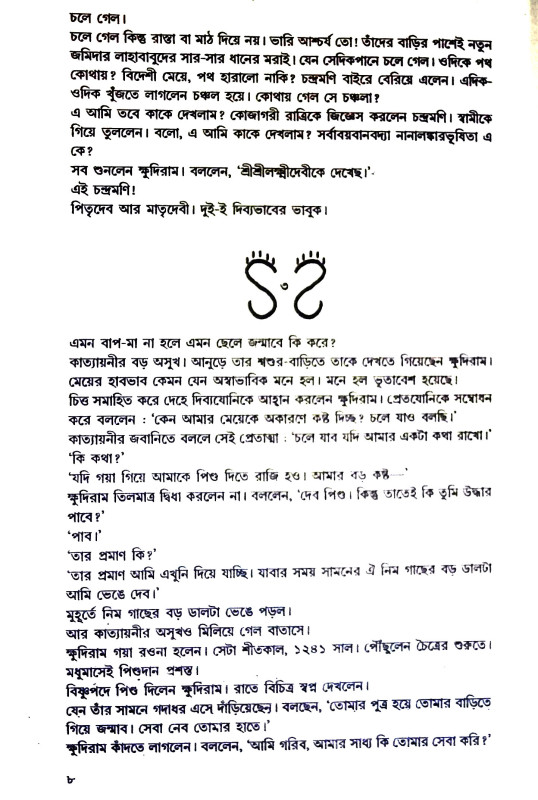 চলে গেল।
চলে গেল কিন্তু রাস্তা বা মাঠ দিয়ে নয়। ভারি আশ্চর্য তো! তাঁদের বাড়ির পাশেই নতুন
জমিদার লাহাবাবুদের সার-সার ধানের মরাই। যেন সেদিকপানে চলে গেল। ওদিকে পথ
কোথায়? বিদেশী মেয়ে, পথ হারালো নাকি? চন্দ্রমণি বাইরে বেরিয়ে এলেন। এদিক-
ওদিক খুঁজতে লাগলেন চঞ্চল হয়ে। কোথায় গেল সে চঞ্চলা?
এ আমি তবে কাকে দেখলাম? কোজাগরী রাত্রিকে জিজ্ঞেস করলেন চন্দ্রমণি। স্বামীকে
গিয়ে তুললেন। বলো, এ আমি কাকে দেখলাম? সর্বাবয়বানবদ্যা নানালঙ্কারভূষিতা এ
কে?
সব শুনলেন ক্ষুদিরাম। বললেন, 'শ্রীশ্রীলক্ষ্মীদেবীকে দেখেছ।'
এই চন্দ্রমণি!
পিতৃদেব আর মাতৃদেবী। দুই-ই দিব্যভাবের ভাবুক।
৩
এমন বাপ-মা না হলে এমন ছেলে জন্মাবে কি করে?
কাত্যায়নীর বড় অসুখ। আনুড়ে তার শ্বশুর-বাড়িতে তাকে দেখতে গিয়েছেন ক্ষুদিরাম।
মেয়ের হাবভাব কেমন যেন অস্বাভাবিক মনে হল। মনে হল ভূতাবেশ হয়েছে।
চিত্ত সমাহিত করে দেহে দিব্যযোনিকে আহ্বান করলেন ক্ষুদিরাম। প্রেতযোনিকে সম্বোধন
করে বললেন : 'কেন আমার মেয়েকে অকারণে কষ্ট দিচ্ছ? চলে যাও বলছি।'
কাত্যায়নীর জবানিতে বললে সেই প্রেতাত্মা : 'চলে যাব যদি আমার একটা কথা রাখো।'
'কি কথা?'
'যদি গয়া গিয়ে আমাকে পিণ্ড দিতে রাজি হও। আমার বড় কষ্ট—'
ক্ষুদিরাম তিলমাত্র দ্বিধা করলেন না। বললেন, 'দেব পিণ্ড। কিন্তু তাতেই কি তুমি উদ্ধার
পাবে?'
'পাব।'
'তার প্রমাণ কি?'
'তার প্রমাণ আমি এখুনি দিয়ে যাচ্ছি। যাবার সময় সামনের ঐ নিম গাছের বড় ডালটা
আমি ভেঙে দেব।'
মুহূর্তে নিম গাছের বড় ডালটা ভেঙে পড়ল।
আর কাত্যায়নীর অসুখও মিলিয়ে গেল বাতাসে।
ক্ষুদিরাম গয়া রওনা হলেন। সেটা শীতকাল, ১২৪১ সাল। পৌঁছুলেন চৈত্রের শুরুতে।
মধুমাসেই পিণ্ডদান প্রশস্ত।
বিষ্ণুপদে পিণ্ড দিলেন ক্ষুদিরাম। রাতে বিচিত্র স্বপ্ন দেখলেন।
যেন তাঁর সামনে গদাধর এসে দাঁড়িয়েছেন। বলছেন, 'তোমার পুত্র হয়ে তোমার বাড়িতে
গিয়ে জন্মাব। সেবা নেব তোমার হাতে।'
ক্ষুদিরাম কাঁদতে লাগলেন। বললেন, 'আমি গরিব, আমার সাধ্য কি তোমার সেবা করি?'
৮